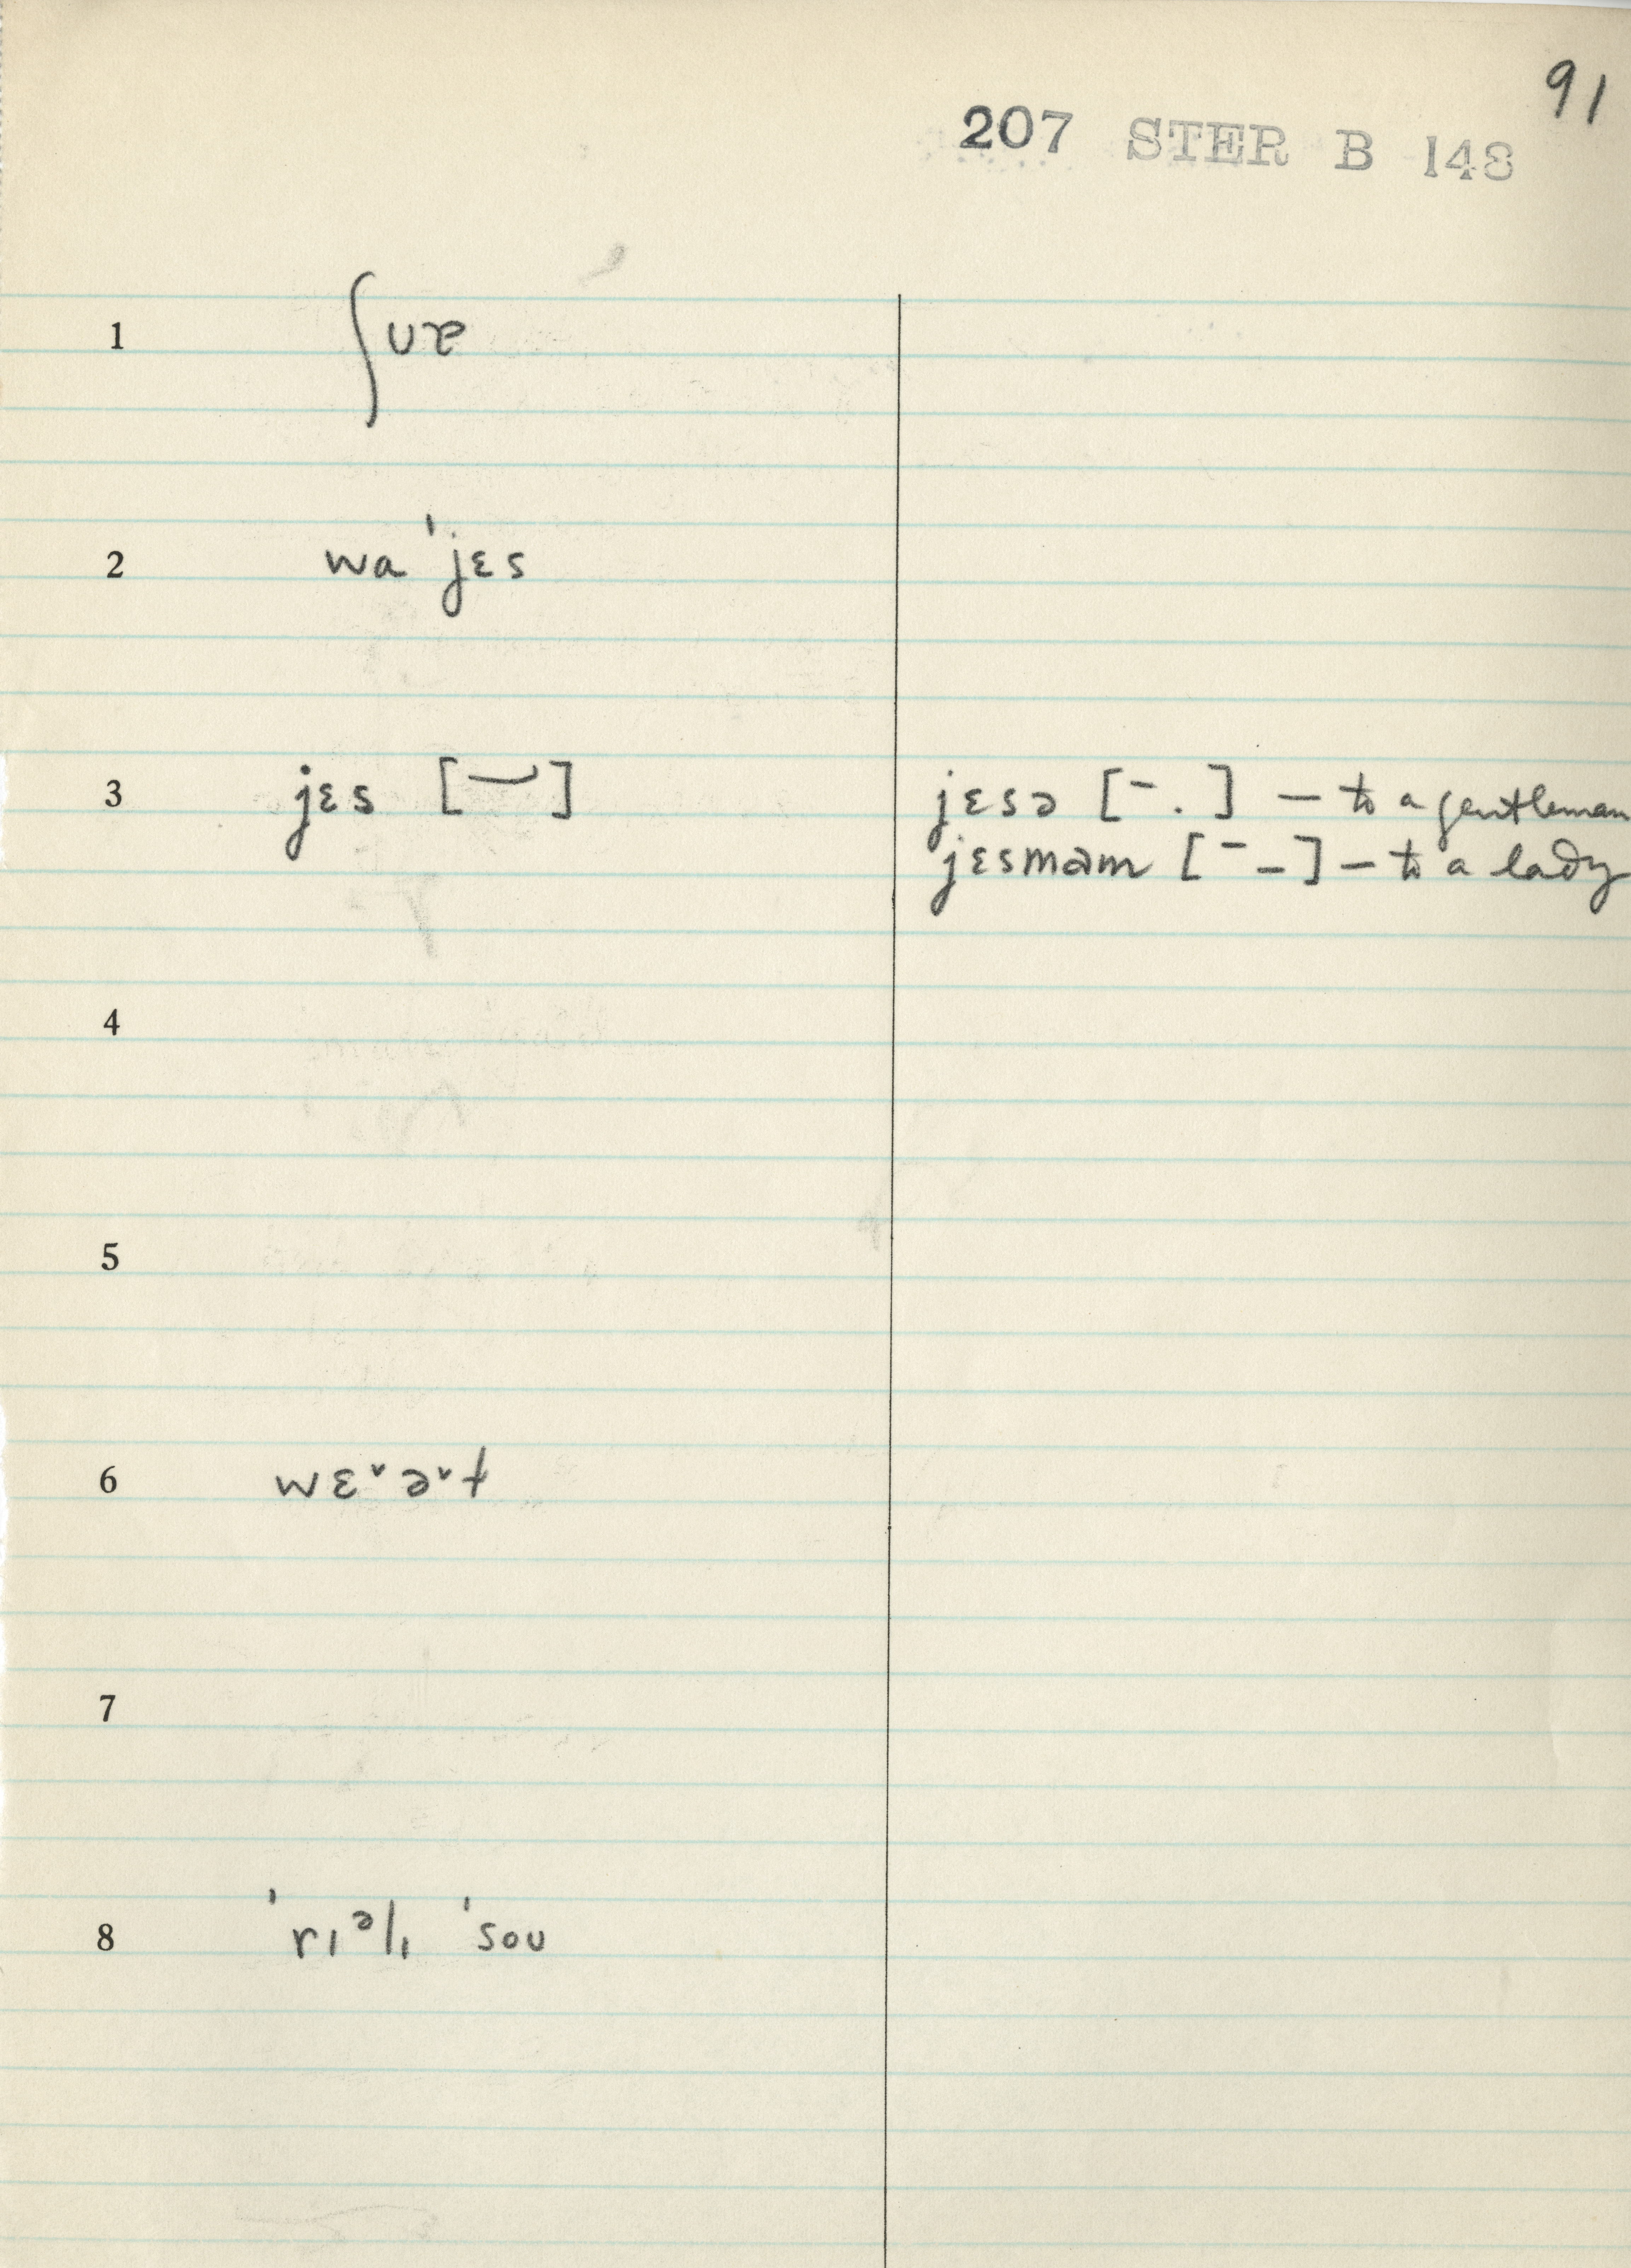 91
207 STER B 148
1 ʃᴜɚ
2 wa ˈjɛs
3 jɛs [ ] jɛsə [¯ .] — to a gentleman
jɛsməm [¯ _] — to a lady
4
5
6 wɛ˅ə˅t
7
8 ˈrɪᵊlɪ ˈsoᴜ